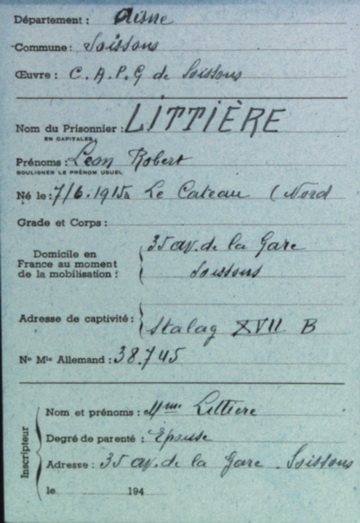 Département : Aisne
Commune : Soissons
Œuvre : C.A.P.G de Soissons
Nom du Prisonnier : LITTIÈRE
EN CAPITALES
Prénoms : Léon Robert
SOULIGNER LE PRÉNOM USUEL
Né le : 7/6.1915 à Le Cateau (Nord
Grade et Corps :
Domicile en
France au moment
de la mobilisation :
35 av. de la Gare
Soissons
Adresse de captivité : Stalag XVII B
No Mle Allemand : 38.745
Inscripteur
Nom et prénoms : Mme Littiere
Degré de parenté : Épouse
Adresse : 35 av. de la Gare. Soissons
le 194